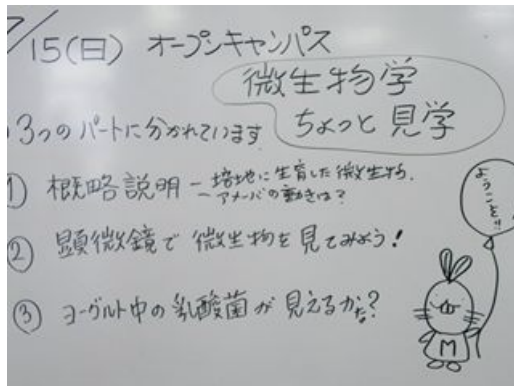 7/15(日) オープンキャンパス
微生物学
ちょっと見学
3つのパートに分かれています
① 概略説明 - 培地に生育した微生物.
- アメーバの動きは?
② 顕微鏡で 微生物を見てみよう!
③ ヨーグルト中の乳酸菌が見えるかな?
ようこそ!!
M